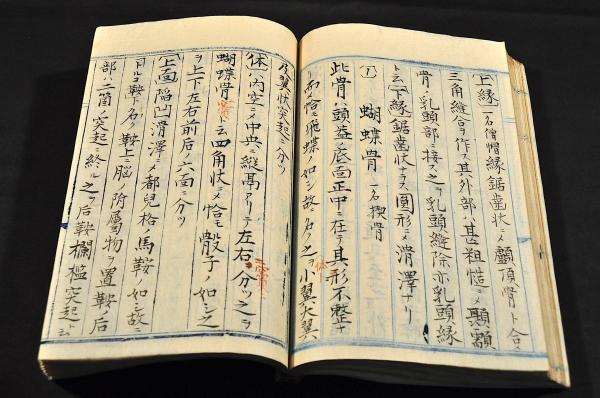 上縁 一名僧帽縁鋸歯状ニメ顱頂骨ト合メ
三角縫合ヲ作ス其外部ハ甚タ粗糙ニメ顳顬
骨ノ乳頭部ニ接ス之ヲ乳頭縫除亦乳頭縁
ト云 下縁 鋸歯状ナラス圓形ニメ滑澤ナリ
1 蝴蝶骨 一名楔骨
此骨ハ頭蓋ノ底面正中ニ在テ其形不整ナ
リ而メ恰モ飛蝶ノ如シ故ニ名ク之ヲ体小翼大翼
及翼状突起ニ分ツ
体 ハ内空ニメ中央ニ縦鬲アリテ左右ニ分ツ之ヲ
蝴蝶骨竇ト云四角状ニメ恰モ骰子ノ如シ之
ヲ上下左右前后ノ六面ニ分ツ
上面 陥凹滑澤ニメ都児格ノ馬鞍ノ如シ故
トルコ鞍ト名ク鞍上ニ脳ノ附属物ヲ置鞍ノ后
部ハ二箇ノ突起ニ終ル之ヲ后鞍欄檻突起ト云